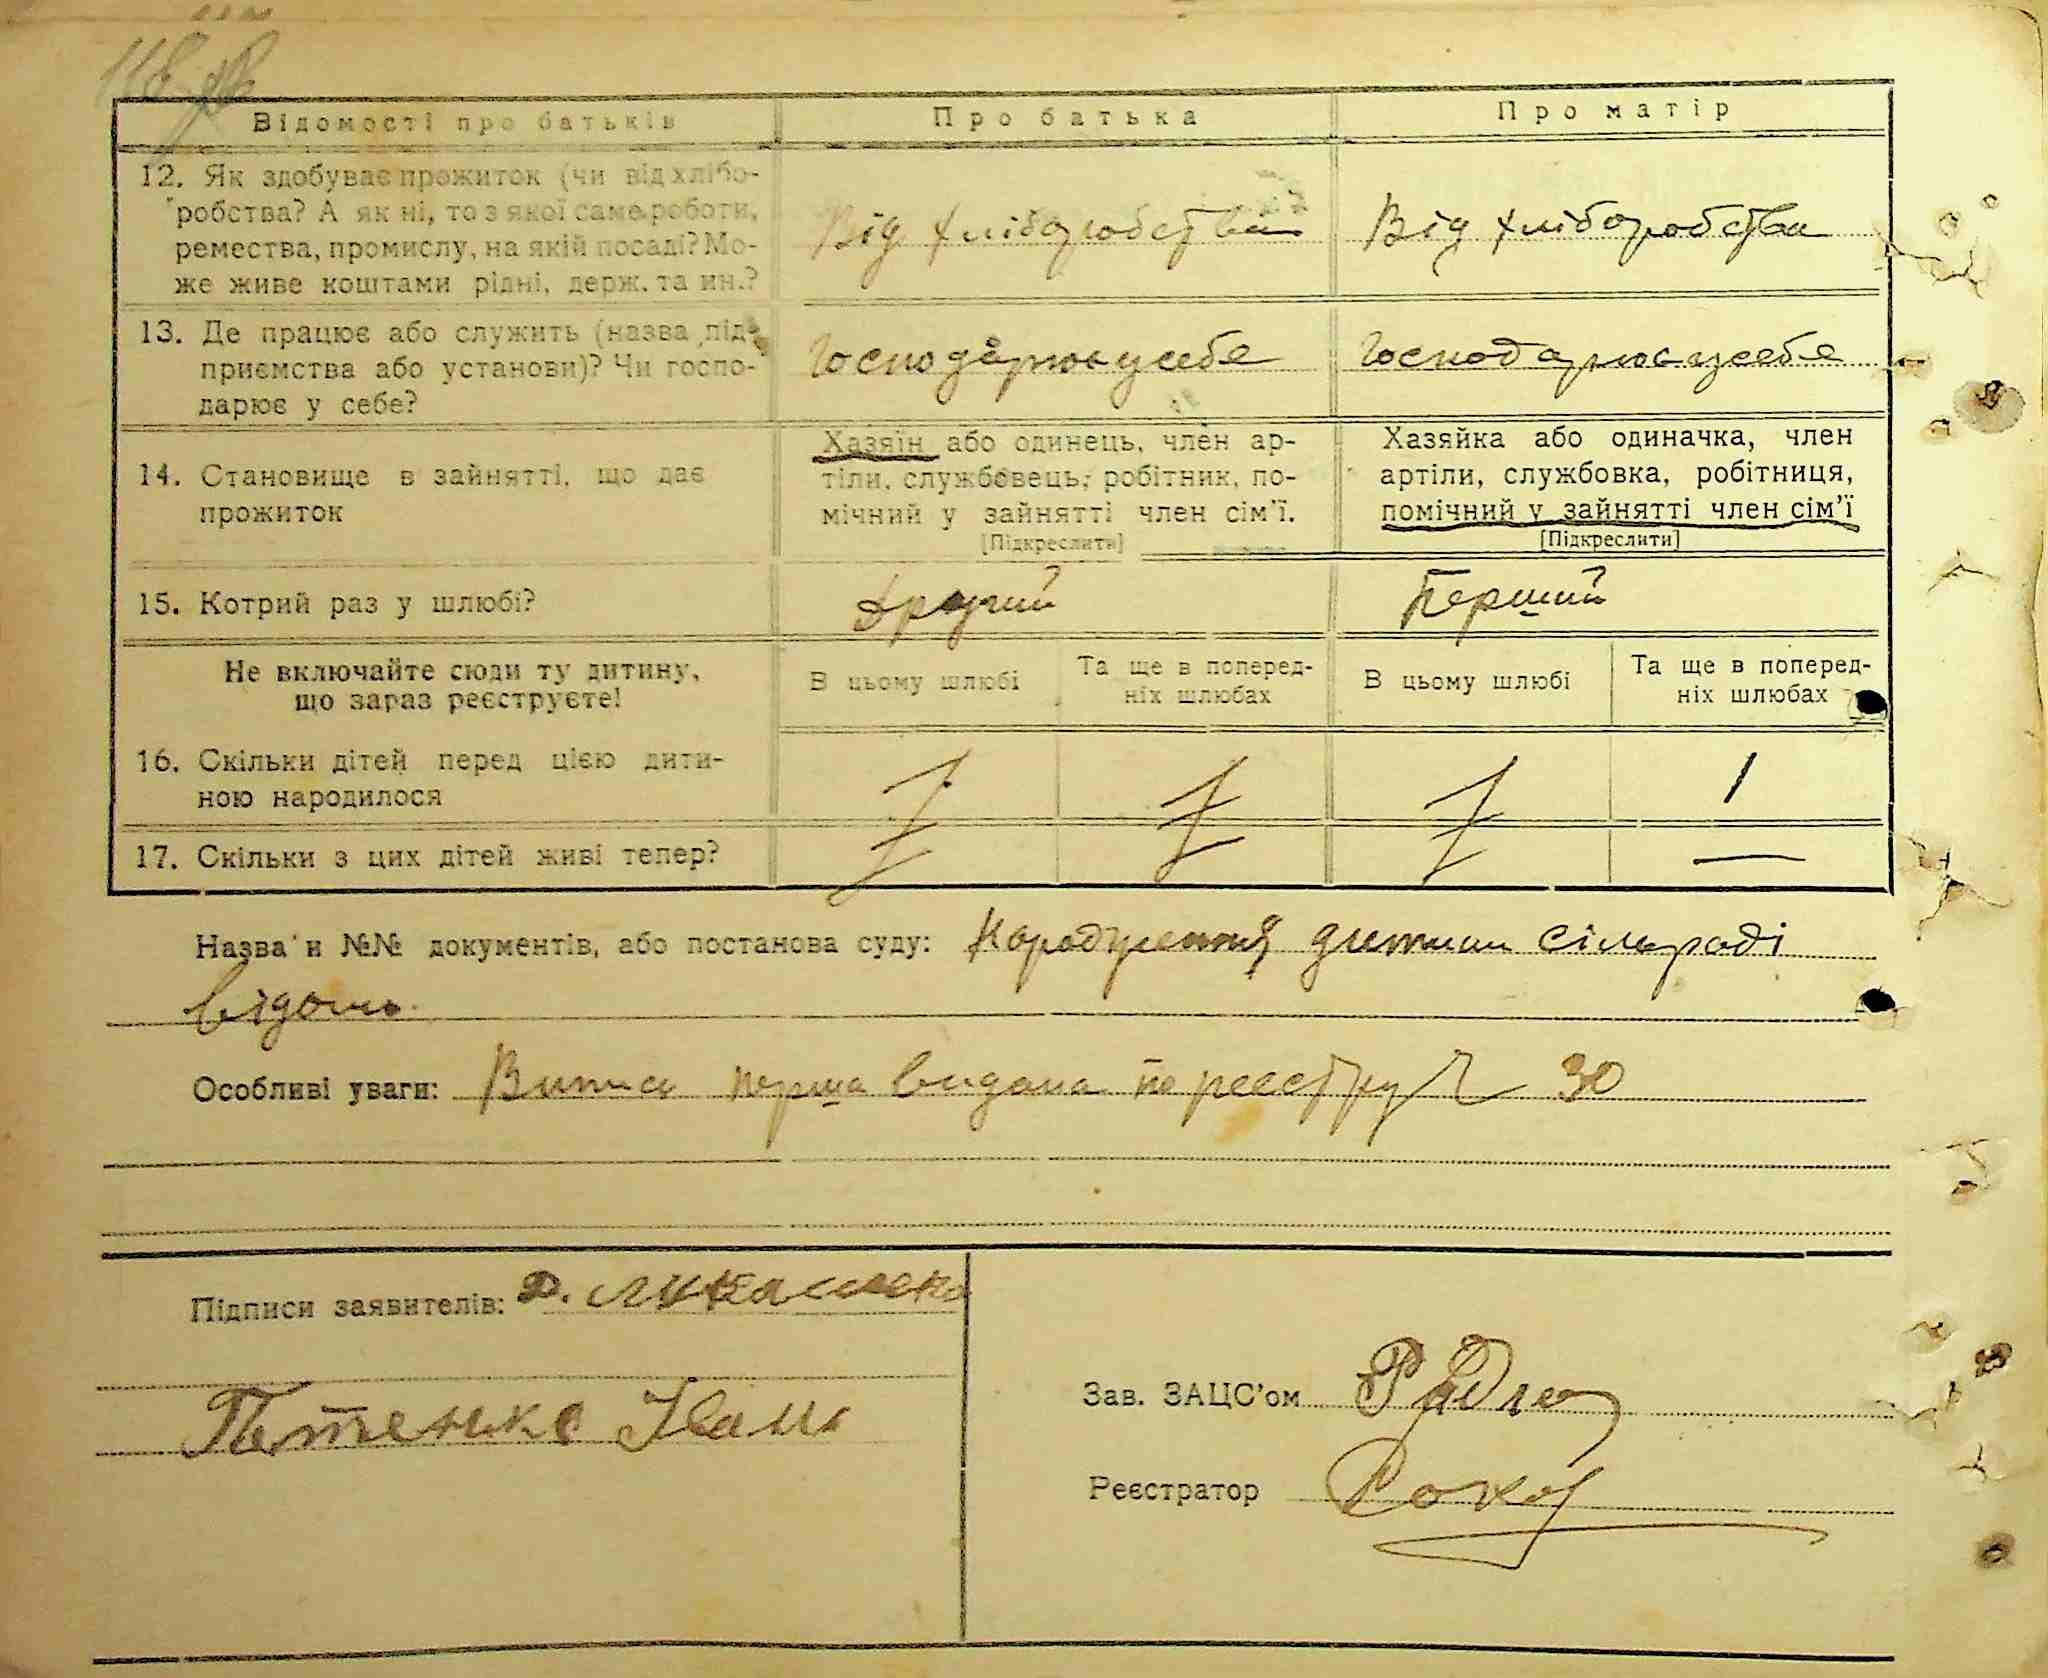 Відомості про батьків Про батька Про матір
12. Як здобуває прожиток (чи від хлібо-
робства? А як ні, то з якої саме роботи,
ремества, промислу, на якій посаді? Мо-
же живе коштами рідні, держ. та ин.?
Від хліборобства Від хліборобства
13. Де працює або служить (назва під-
приємства або установи)? Чи госпо-
дарює у себе?
Господарює у себе Господарює у себе
14. Становище в зайнятті, що дає
прожиток
Хазяїн або одинець, член ар-
тіли, службовець, робітник, по-
мічний у зайнятті член сім'ї.
[Підкреслити]
Хазяйка або одиначка, член
артіли, службовка, робітниця,
помічний у зайнятті член сім'ї
[Підкреслити]
15. Котрий раз у шлюбі? Другий Перший
Не включайте сюди ту дитину,
що зараз реєструєте!
В цьому шлюбі
Та ще в поперед-
ніх шлюбах
В цьому шлюбі
Та ще в поперед-
ніх шлюбах
16. Скільки дітей перед цією дити-
ною народилося
1
17. Скільки з цих дітей живі тепер? —
Назва и №№ документів, або постанова суду: Народження дитини сільраді
відомо.
Особливі уваги: Випис перша видана по реєстру 30
Підписи заявителів:
Іван
Зав. ЗАЦС'ом
Реєстратор